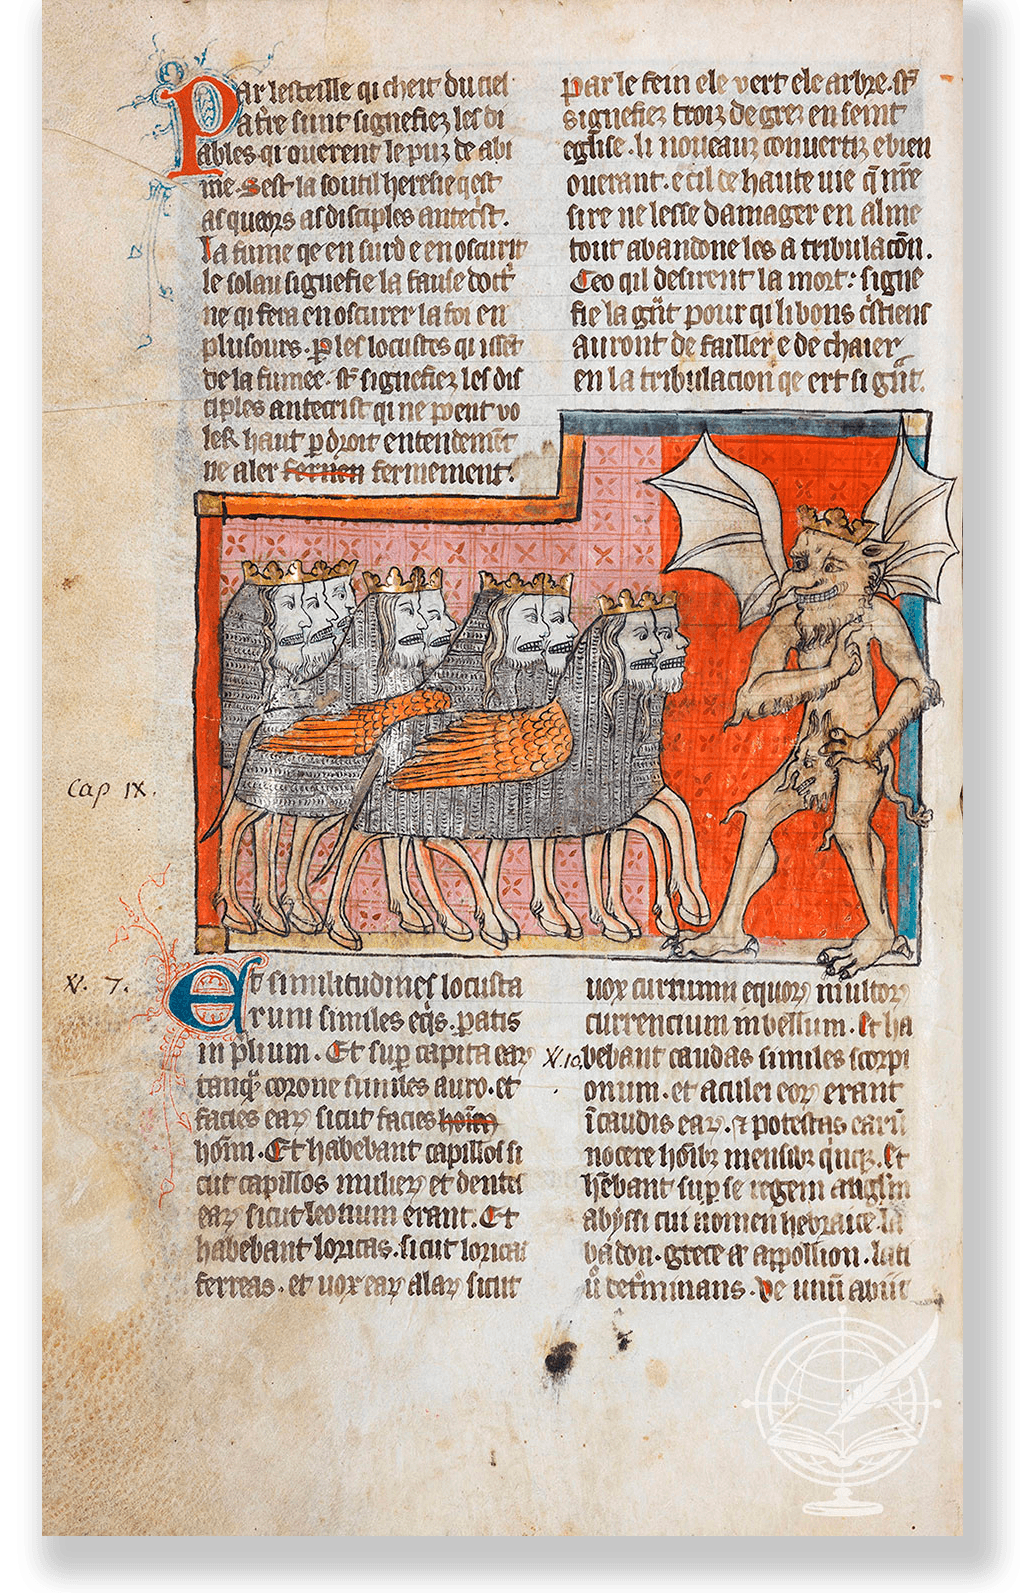 Par lesteille qi cheit du ciel
a t're sunt signefiez les di
ables qi ouerent le puz de abi
me. Sest la soutil heresie q est
as quors as disciples antec'st.
la fume qe en surd e en oscurit
le solau signefie la fause doct'
ne qi fera en oscurer la foi en
plusours. p les locustes qi isset
de la fumee. st' signefiez les dis
ciples antecrist qi ne poent vo
ler haut p droit entendem̄t
ne aler fermen fermement.
par le fein ele vert ele arbre. st'
signefiez troiz degrez en seint
eglise. li noueauz conuertiz e bien
ouerant. e cil de haute uie q̄ n're
sire ne lesse damager en alme
tout abandone les a tribulac̄on.
Ceo qil desirent la mort: signe
fie la g̃nt pour qi li bons c'stiens
auront de failler e de chaier
en la tribulacion qe ert si g̃nt.
Cap IX.
V. 7.
Et similitudines locusta
rum similes eq̄s. patis
in plium. Et sup capita eaꝝ
tanq̄ corone similes auro. et
facies eaꝝ sicut facies hoīm
hoīm. Et habebant capillos si
cut capillos mulieꝝ et dentes
eaꝝ sicut leonum erant. Et
habebant loricas. sicut loricas
ferreas. et uox eaꝝ alaꝝ sicut
uox curruum equoꝝ multoꝝ
currencium in bellum. Et ha
V.10. bebant caudas similes scorpi
onum. et aculei eoꝝ erant
ī caudis eaꝝ. ⁊ potestas earū
nocere hoībꝫ mensibꝫ quiqꝫ. Et
hēbant sup se regem angl̄m
abyssi cui nomen hebraice. la
badon. grece a appollion. lati
determinans. Ve unū abiit